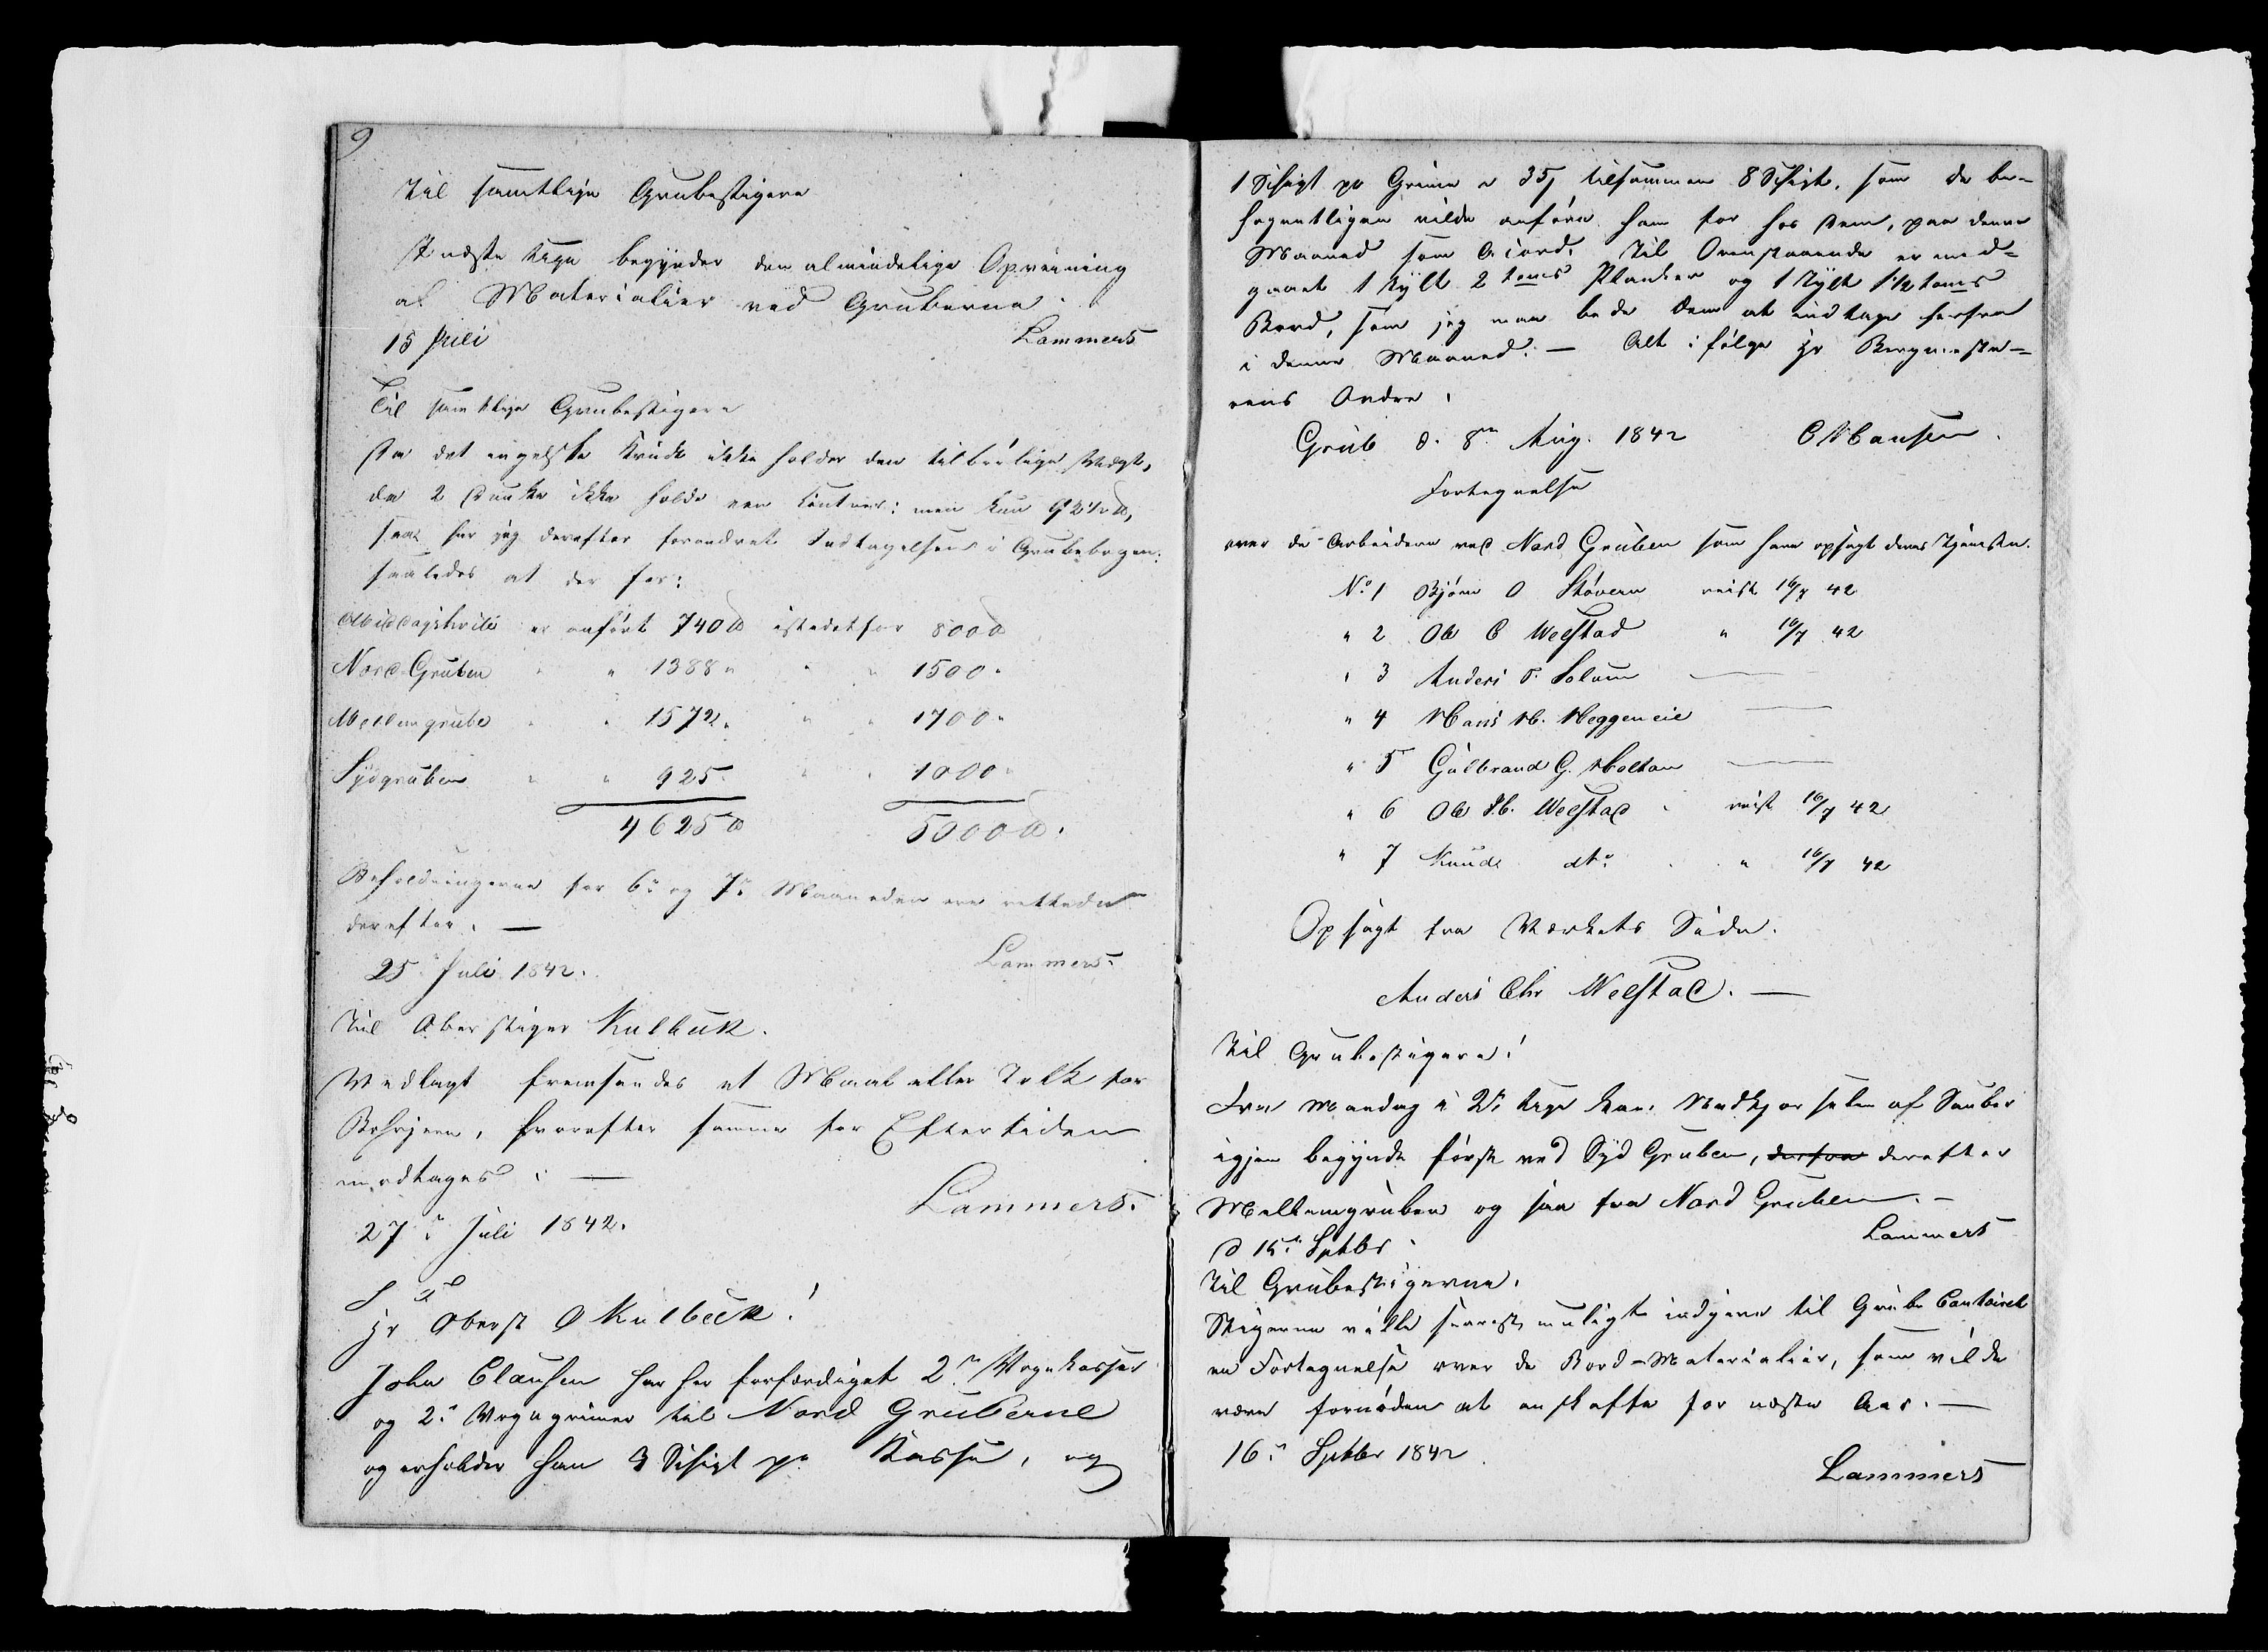 9
Til samtlige Grubestigere
I næste Uge begynder den almindelige Opveining
af Materialier ved Gruberne.
15 Juli Lammers
Til samtlige Grubestigere
Da det engelske Krudt ikke holder den tilbørlige Vægt,
da 2 ikke holde een Centner: men kun 92½ ℔,
saa har jeg derefter forandret Indtagelsen i Grubebogen.
saaledes at der for:
Middagshvile er anført 740 ℔ istedetfor 800 ℔
Nord-Gruben " " 1388 " " " 1500 "
Mellemgrube " " 1572 " " " 1700 "
Sydgruben " " 925 " " 1000 "
4625 ℔ 5000 ℔.
Beholdningerne for 6te og 7de Maaneder ere rettede
derefter. —
25de Juli 1842. Lammers.
Til Oberstiger Kulbeck.
Vedlagt fremsendes et Maal eller Tolk for
Bohrjern, hvorefter samme for Eftertiden
modtages. —
27de Juli 1842. Lammers.
S T
Hr Oberst O Kulbeck!
John Clausen har her forfærdiget 2de Vognkasser
og 2de Vogngrimer til Nord Gruberne
og erholder han 3 Schigt pr Kasse, og
1 Schigt pr Grime a 35/ tilsammen 8 Schigt, som de be-
hagentligen vilde anføre ham for hos Dem, paa denne
Maaned som Acord. Til Ovenstaaende er med-
gaaet 1 Tylt 2 toms Planker og 1 Tylt 1½ toms
Bord, som jeg maa bede Dem at indtage herfra
i denne Maaned. — Alt i følge Hr Bergmeste-
rens Ordre.
Grub d. 8de Aug. 1842 C Hansen.
Fortegnelse
over de Arbeidere ved Nord Gruben som have opsagt deres Tjeneste.
No 1 Bjørn O Støvern reist 16/7 42
" 2 Ole C Weestad " 16/7 42
" 3 Anders P. Solum —
" 4 Hans H. Heggeneie —
" 5 Gulbrand G. Holtan —
" 6 Ole Weestad " reist 16/7 42
" 7 Knud dto " 16/7 42
Opsagt fra Værkets Side.
Anders Chr Weestad. —
Til Grubestigere!
Fra Mandag i 2de Uge kan Nedkjørselen af Sauber
igjen begynde først ved Syd Gruben, derfra derefter
Mellemgruben og saa fra Nord Gruben. —
d 15de Septbr. Lammers
Til Grubestigerne.
Stigerne ville snarest muligt indgive til Grube Contoiret
en Fortegnelse over de Bord-Materialier, som vilde
være fornøden at anskaffe for næste Aar. —
16de Septbr 1842
Lammers